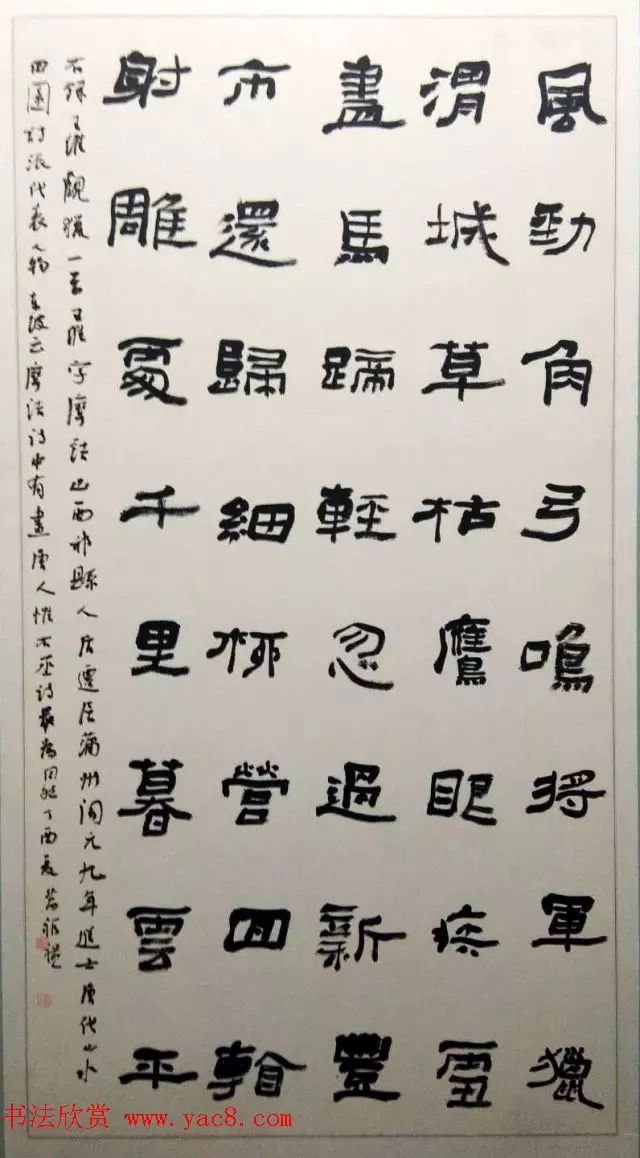 風勁角弓鳴將軍獵
渭城草枯鷹眼疾雪
盡馬蹄輕忽過新豐
市還歸細柳營回看
射雕處千里暮雲平
右錄王維觀獵一首王維字摩詰山西祁縣人后遷居蒲州開元九年進士唐代山水
田園詩派代表人物東坡云摩詰詩中有畫唐人惟右丞詩最為丁酉夏
书法欣赏 www.yac8.com